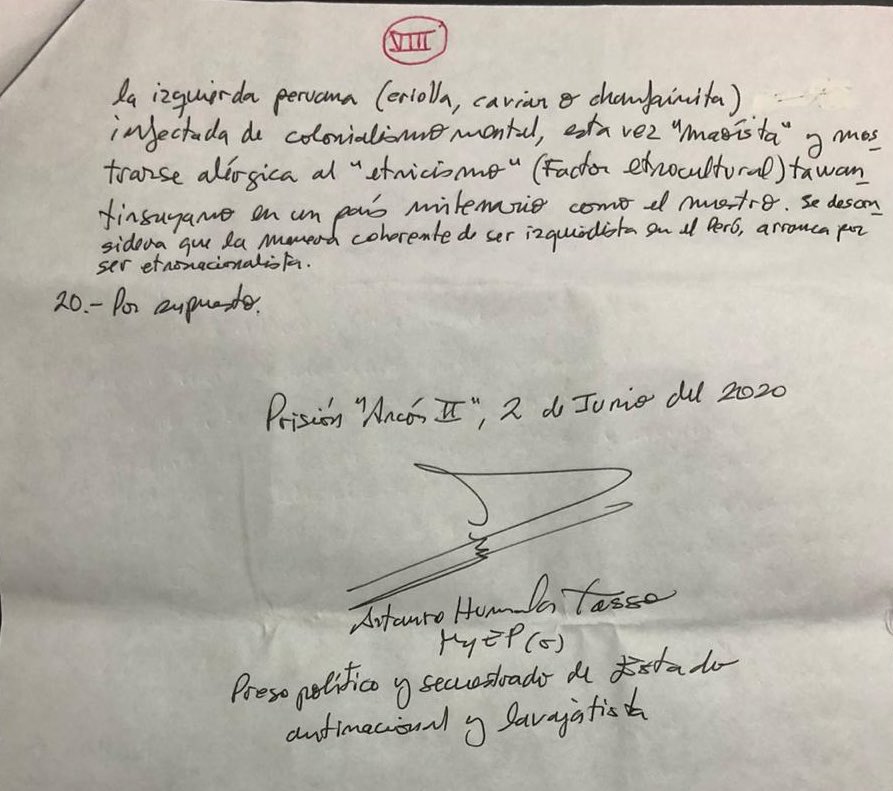 VIII
la izquierda peruana (criolla, caviar o chanfainita)
infectada de colonialismo mental, esta vez "maoísta" y mos_
trarse alérgica al "etnicismo" (Factor etnocultural) tawan_
tinsuyano en un país milenario como el nuestro. Se descon_
sidera que la manera coherente de ser izquiedista en el Perú, arranca por
ser etnonacionalista.
20.- Por supuesto.
Prisión "Ancón II", 2 de Junio del 2020
Antauro Humala Tasso
My EP (r)
Preso político y secuestrado de Estado
antinacional y lavajatista